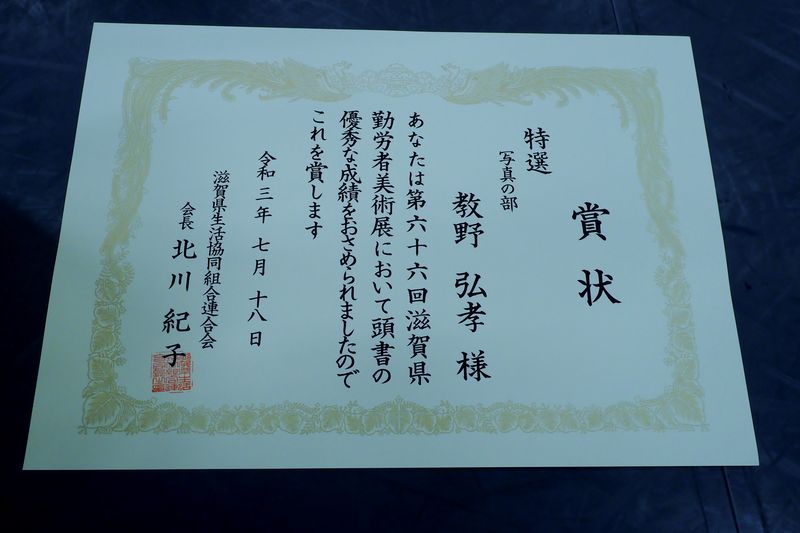 賞状
特選
写真の部
教野 弘孝 様
あなたは第六十六回滋賀県
勤労者美術展において頭書の
優秀な成績をおさめられましたので
これを賞します
令和三年七月十八日
滋賀県生活協同組合連合会
会長 北川 紀子